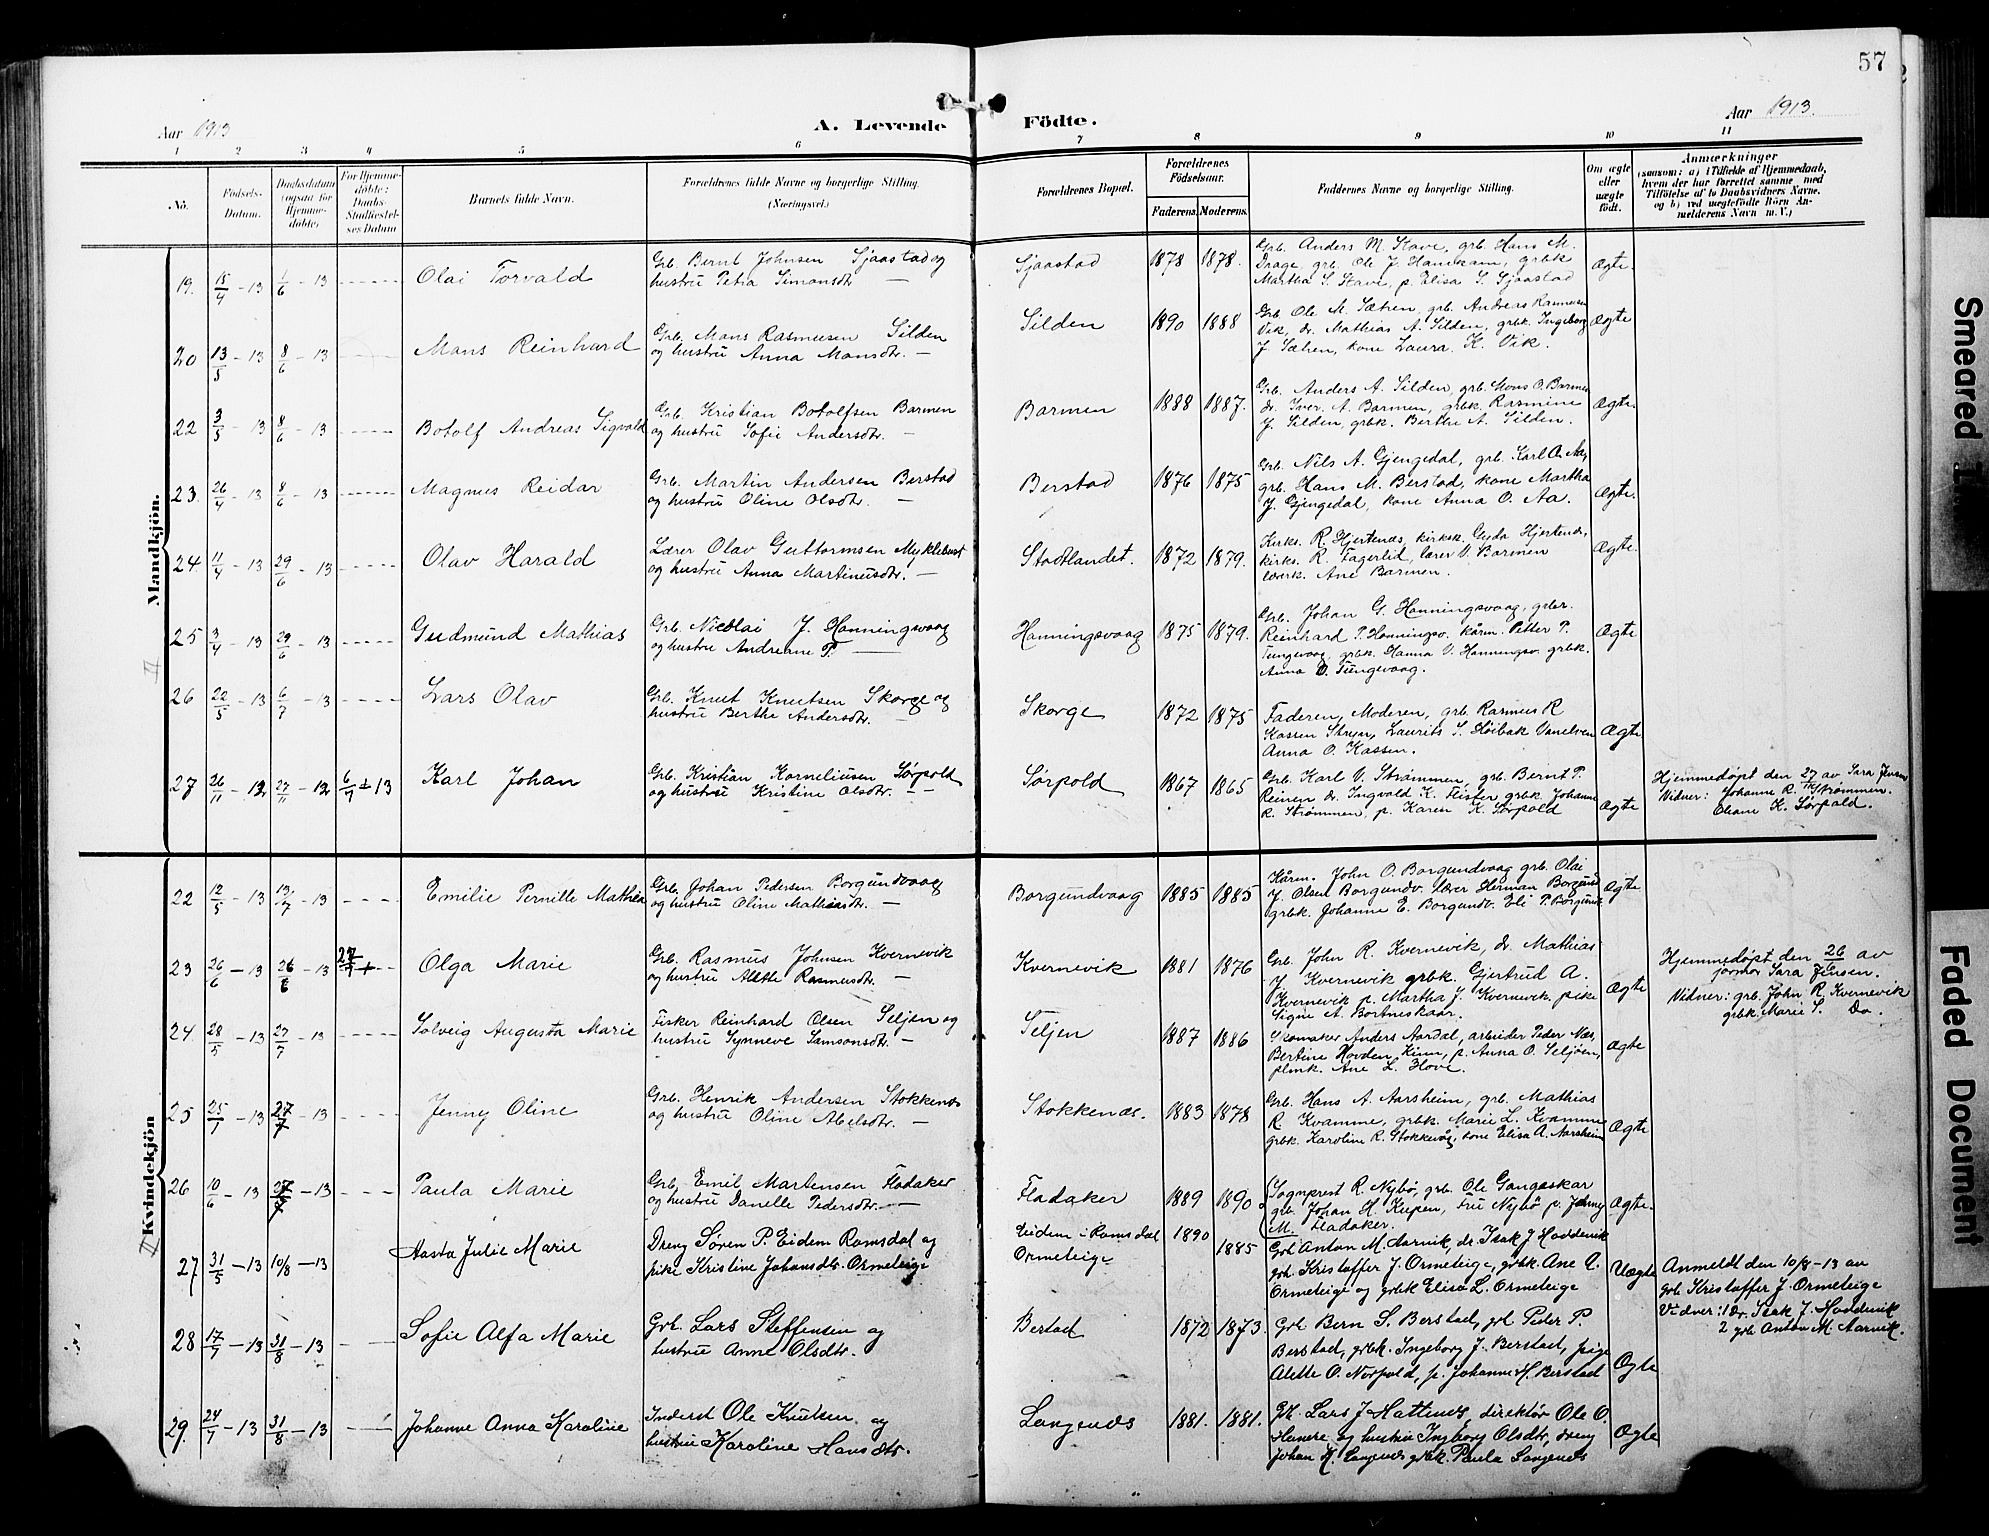 57
Aar 1913
A. Levende
Födte.
Aar 1913.
1 2 3 4 5 6 7 8 9 10 11
No.
Födsels-Datum.
Daabsdatum (ogsaa for Hjemmedöbte)
For Hjemmedöbte: Daabs-Stadfæstelses Datum
Barnets fulde Navn.
Forældrenes fulde Navne og borgerlige Stilling. (Næringsvei.)
Forældrenes Bopæl.
Forældrenes Födselsaar.
Faderens. Moderens.
Faddernes Navne og borgerlig Stilling.
Om ægte eller uægte födt.
Anmærkninger
(saasom: a) i Tilfælde af Hjemmedaab,
hvem der har forrettet samme med
Tilföielse af to Daabsvidners Navne.
og b) ved uægtefödte Börn Anmelderens Navn m. V.)
Mandkjön.
19. 15/4 - 13 1/6 - 13 ----- Olai Torvald
Grb. Bernt Johnsen Sjaastad og
hustru Petra Simonsdtr. —
Sjaastad 1878 1878.
Grb. Anders M. Stave, grb. Hans M.
Drage, grb. Ole J. Hamekam, grbk
Martha S. Stave, p. Elisa S. Sjaastad
Ægte.
20 13/5 - 13 8/6 - 13 Mans Reinhard
Grb. Mans Rasmusen Silden
og hustru Anna Mansdtr. —
Silden 1890 1888
Grb. Ole M. Sætren, grb. Andreas Rasmusen
Vik, dr. Mathias A. Silden, grbk. Ingeborg
J. Sætren, kone Laura K. Vik.
Ægte
22 3/5 - 13 8/6 - 13 ----- Botolf Andreas Sigvald
Grb. Kristian Botolfsen Barmen
og hustru Sofie Andersdtr. —
Barmen 1888 1887.
Grb. Anders A. Silden, grb. Mons O. Barmen
dr. Iver A. Barmen, grbk. Rasmine
J. Silden, grbk. Berthe A. Silden.
Ægte.
23. 26/4 - 13 8/6 - 13 ----- Magnus Reidar
Grb. Martin Andersen Berstad
og hustru Oline Olsdtr. —
Berstad 1876 1875
Grb. Nils A. Gjengedal, grb. Karl O. Aa,
grb. Hans M. Berstad, kone Martha
J. Gjengedal, kone Anna O. Aa.
Ægte.
24 11/4 - 13 29/6 - 13 ----- Olav Harald
Lærer Olav Guttormsen Myklebust
og hustru Anna Martinusdtr. —
Stadtlandet. 1872 1879.
Kirks. R. Hjertenæs, kirksk. Gyda Hjertenæs,
kirks. R. Fagerlid, lærer V. Barmen
lærerk. Ane Barmen.
Ægte.
25 3/4 - 13 29/6 - 13 ----- Gudmund Mathias
Grb. Nicolai J. Honningsvaag
og hustru Andreane P. —
Honningsvaag 1875 1879.
Grb. Johan G. Honningsvaag, grbr.
Reinhard P. Honningsv. kårm. Petter P.
Tungevaag, grbk. Hanna V. Honningsv. grbk.
Anna O. Tungevaag.
Ægte
26 22/5 - 13 6/7 - 13 ---- Lars Olav
Grb. Knut Knutsen Skorge og
hustru Berthe Andersdtr. —
Skorge 1872 1875
Faderen, Moderen, grb. Rasmus R
Kassen Stryn, Laurits S. Løibak Vanelven
Anna O. Kassen.
Ægte
27 26/11 - 12 27/11 - 12 6/7 + 13 Karl Johan
Grb. Kristian Korneliusen Sørpold
og hustru Kristine Olsdtr. — —
Sørpold 1867 1865
Grb. Karl V. Strømmen, grb. Bernt P.
Reinen dr. Ingvald K. Feister grbk Johanne
R. Strømmen, p. Karen K. Sørpold
Ægte
Hjemmedøpt den 27/11 av Sara Jensen
Vidner: Johanne R. Strømmen.
K. Sørpold.
Kvindekjön
22 12/5 - 13 13/7 - 13 ---- Emilie Pernille Mathea
Grb. Johan Pedersen Borgundvaag
og hustru Oline Mathiasdtr. —
Borgundvaag 1885 1885
Kårm. John O. Borgundvaag grb. Olai
J. Olsen Borgundv. Lærer Herman Borgund
grbk. Johanne E. Borgundv. Eli P. Borgundv.
Ægte
23 26/6 - 13 26/6 - 13 27/7 + Olga Marie
Grb. Rasmus Johnsen Kvernevik
og hustru Alette Rasmusdtr. —
Kvernevik 1881 1876
Grb. John R. Kvernevik, dr. Mathias
J. Kvernevik grbk. Gjertrud A.
Kvernevik p. Martha J. Kvernevik, pike
Signe A. Bortneskaar.
Ægte
Hjemmedøpt den 26/6 av
jormor Sara Jensen.
Vidner: grb. John R. Kvernevik
grbk. Marie S. Do.
24. 28/5 - 13 27/7 - 13 ---- Solveig Augusta Marie
Fisker Reinhard Olsen Seljen og
hustru Synneve Samsonsdtr. —
Seljen 1887 1886
Skomaker Anders Aardal, arbeider Peder Næs,
Bertine Hovden Kinn, p. Anna O. Seljøen,
plmk. Ane L. Hove.
Ægte
25 25/7 - 13 27/7 - 13 ---- Jenny Oline
Grb. Henrik Andersen Stokkenæs
og hustru Oline Abelsdtr. —
Stokkenæs. 1883 1878
Grb. Hans A. Aarsheim, grb. Mathias
R. Kvamme, grbk. Marie L. Kvamme
grbk. Karoline R. Stokkevåg, kone Elisa A. Aarsheim
Ægte
26 10/6 - 13 27/7 - 13 ---- Paula Marie
Grb. Emil Martensen Fladaker
og hustru Danelle Pedersdtr. —
Fladaker 1889 1890
Sognprest R. Nybø, grb. Ole Gangeskar
grb. Johan H. Kupen, Fru Nybø p. Jenny
M. Fladaker.
Ægte.
27 31/5 - 13 10/8 - 13 Aasta Julie Marie
Dreng Søren P. Eidem Romsdal og
pike Kristine Johansdtr. Ormeteige
Eidem i Romsdal 1890
Ormeteige 1885
Grb Anton M. Aarvik, dr. Isak J Hoddevik
grb. Kristoffer J. Ormeteige, grbk. Ane A.
Ormeteige og grbk Elisa L. Ormeteige
Uægte
Anmeldt den 10/8 - 13 av
grb. Kristoffer J. Ormeteige
Vidner: 1 Dr. Isak J. Hoddevik
2 grb Anton M. Aarvik.
28 17/7 - 13 31/8 - 13 Sofie Alfa Marie
Grb. Lars Steffensen og
hustru Anne Olsdtr. —
Berstad 1872 1873.
Grb Bern S. Berstad, grb Peder P.
Berstad, grbk. Ingeborg J. Berstad, pige
Alette O. Nørpold, p. Johanne H. Berstad
Ægte
29. 24/7 - 13 31/8 - 13 Johanne Anna Karoline
Inderst Ole Knutsen og
hustru Karoline Hansdtr.
Langenæs 1881. 1881.
Grb. Lars J. Hattenes, direktør Ole O.
Hamre og hustru Ingborg Olsdtr, dreng
Johan H. Langenæs grbk. Paula Langenæs
Ægte
Smeared
Faded Document